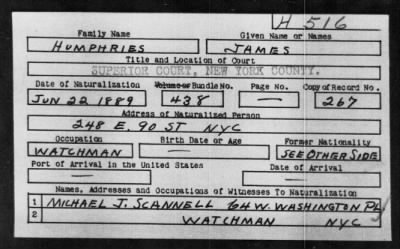 H 516
Family Name Given Name or Names
HUMPHRIES JAMES
Title and Location of Court
SUPERIOR COURT, NEW YORK COUNTY.
Date of Naturalization Volume or Bundle No. Page No. Copy of Record No.
JUN 22 1889 438 — 267
Address of Naturalized Person
248 E. 90 ST NYC
Occupation Birth Date or Age Former Nationality
WATCHMAN — SEE OTHER SIDE
Port of Arrival in the United States Date of Arrival
— —
Names, Addresses and Occupations of Witnesses To Naturalization
1 MICHAEL J. SCANNELL 64 W. WASHINGTON PL
2 WATCHMAN NYC